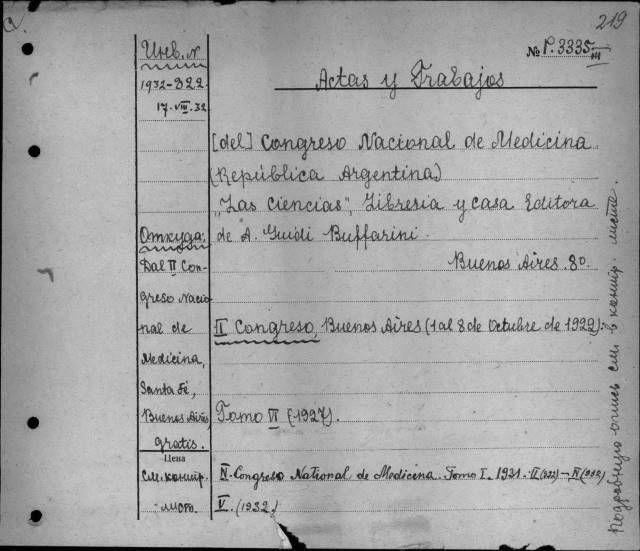 219
№ P.3335 III
Actas y Trabajos
Инв. №
1932-822
17.VIII.32
[del] Congreso Nacional de Medicina.
(República Argentina)
"Las Ciencias", Libresia y casa Editora
de A. Guidi Buffarini.
Buenos Aires. 8°.
Откуда:
Dal II Con-
greso Nacio
nal de
Medicina,
Santa Fé,
Buenos Aires
gratis.
II Congreso, Buenos Aires (1 al 8 de Octubre de 1922):
Tomo VI (1927).
Цена
См. контр.
лист.
IV. Congreso National de Medicina. Tomo I. 1931. II (932) - IV (932)
V. (1932.)
Подробную опись см. в контр. листе.